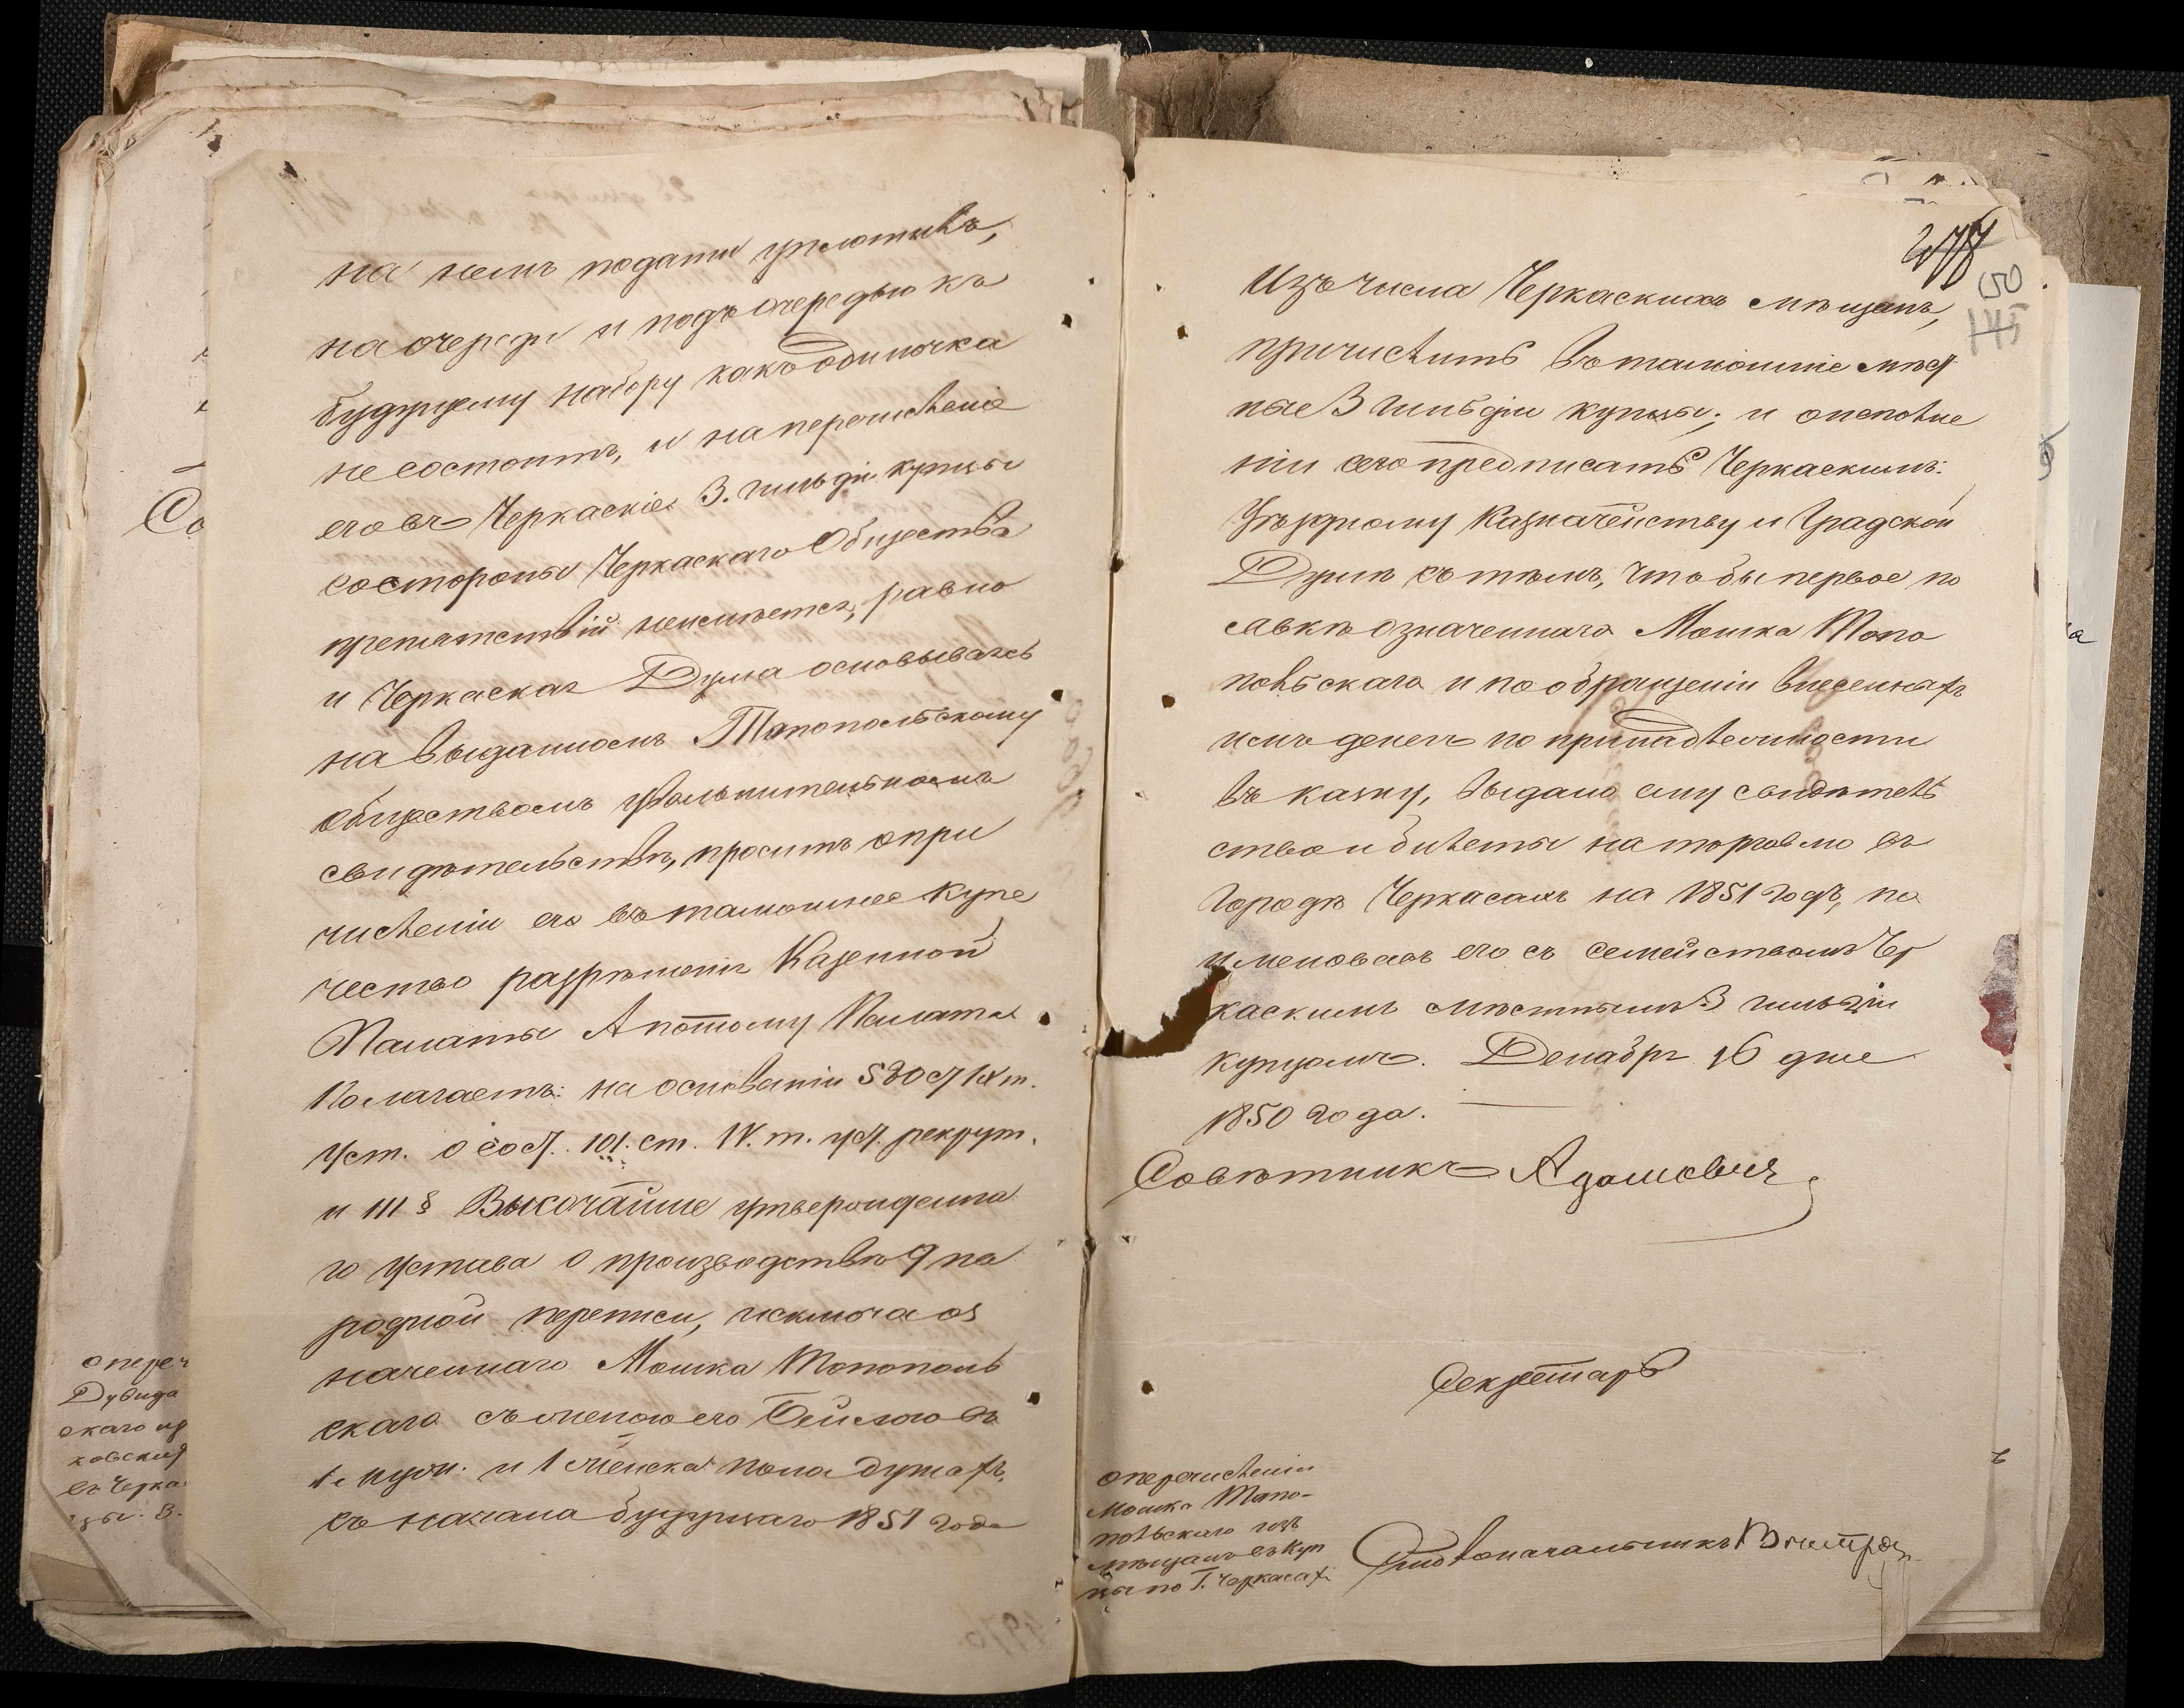 на немъ подати уплотивъ,
на очереди и подъ очередью къ
будущему набору какъ одиночка
не состоитъ, и на перечисленіе
его въ Черкаскіе 3. гильдіи купцы
со стороны Черкаскаго Общества
препятствій неимѣется, равно
и Черкаская Дума основываясь
на выданномъ Топопольскому
обществомъ увольнительномъ
свидѣтельствѣ, проситъ о при
численіи его въ тамошнее купе
чество разрѣшенія Казенной
Палаты А потому Палата
Полагаетъ: на основаніи 530 ст IX т.
Уст. о сост. 101. ст. IV. т. уст. рекрут.
и 111 § Высочайше утвержденна
го устава о производствѣ 9 на
родной переписи, исключа оз
наченнаго Мошка Топополь
скаго съ женою его Бейлою въ
1. муж. и 1 женска пола душахъ,
съ начала будущаго 1851 года
Изъ числа Черкаскихъ мѣщанъ,
причислить въ тамошніе мѣст
ные 3 гильдіи купцы; и о исполне
ніи сего предписать Черкаскимъ:
Уѣздному Казначейству и Градской
Думѣ съ тѣмъ, чтобы первое по
явкѣ означеннаго Мошка Топо
польскаго и по обращеніи внесенныхъ
имъ денегъ по принадлежности
въ казну, выдало ему свидѣтель
ство и билеты на торговлю въ
городѣ Черкасахъ на 1851 годъ, по
именовавъ его съ семействомъ Чер
каскимъ мѣстнымъ 3 гильдіи
купцомъ. Декабря 16 дня
1850 года.
Совѣтникъ Адамовичъ
Секретарь
о перечисленіи
Мошка Топо-
польскаго изъ
мѣщанъ въ куп
цы по Г. Черкасахъ
Столоначальникъ
150
145
о переч
Дувида
скаго из
ковских
въ Черка
цы. 3.
Со